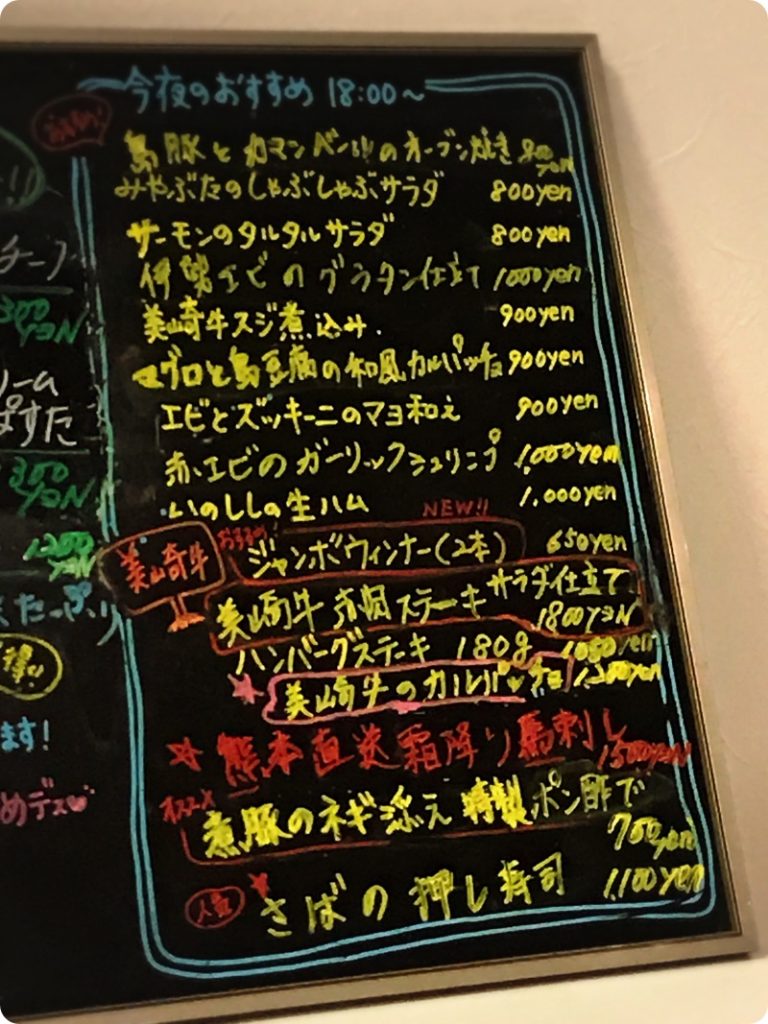 今夜のおすすめ 18:00～
島豚とカマンベールのオーブン焼き 800yen
みやぶたのしゃぶしゃぶサラダ 800yen
サーモンのタルタルサラダ 800yen
伊勢エビのグラタン仕立て 1000yen
美崎牛スジ煮込み 900yen
マグロと島豆腐の和風カルパッチョ 900yen
エビとズッキーニのマヨ和え 900yen
赤エビのガーリックシュリンプ 1,000yen
いのししの生ハム 1,000yen
NEW!!
美崎牛
おすすめ!
ジャンボウィンナー(2本) 650yen
美崎牛赤肉ステーキ サラダ仕立て 1800yen
ハンバーグステーキ 180g
美崎牛のカルパッチョ 1,200yen
熊本直送霜降り馬刺し 1500yen
オススメ
煮豚のネギ添え 特製ポン酢で 700yen
人気 さばの押し寿司 1,100yen
チーフ
300yen
リーム
ぱすた
350yen
1200yen
たっぷり
ます!
めデス